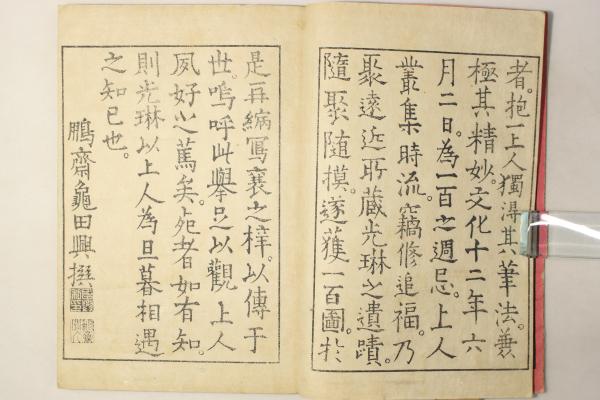 者。抱一上人獨得其筆法。兼
極其精妙。文化十二年六
月二日。為一百之週忌。上人
叢集時流。竊修追福。乃
聚遠近所藏光琳之遺蹟。
隨聚隨摸。遂獲一百圖。於
是再縮寫裒之梓。以傳于
世。嗚呼此舉足以觀上人
夙好之篤矣。死者如有知。
則光琳以上人為旦暮相遇
之知已也。
鵬齋龜田興撰